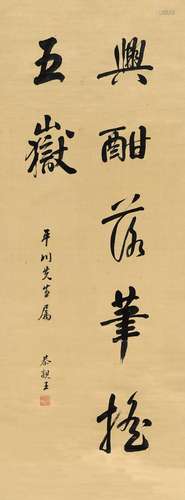 興酣落筆搖
五嶽
平川先生屬
恭親王